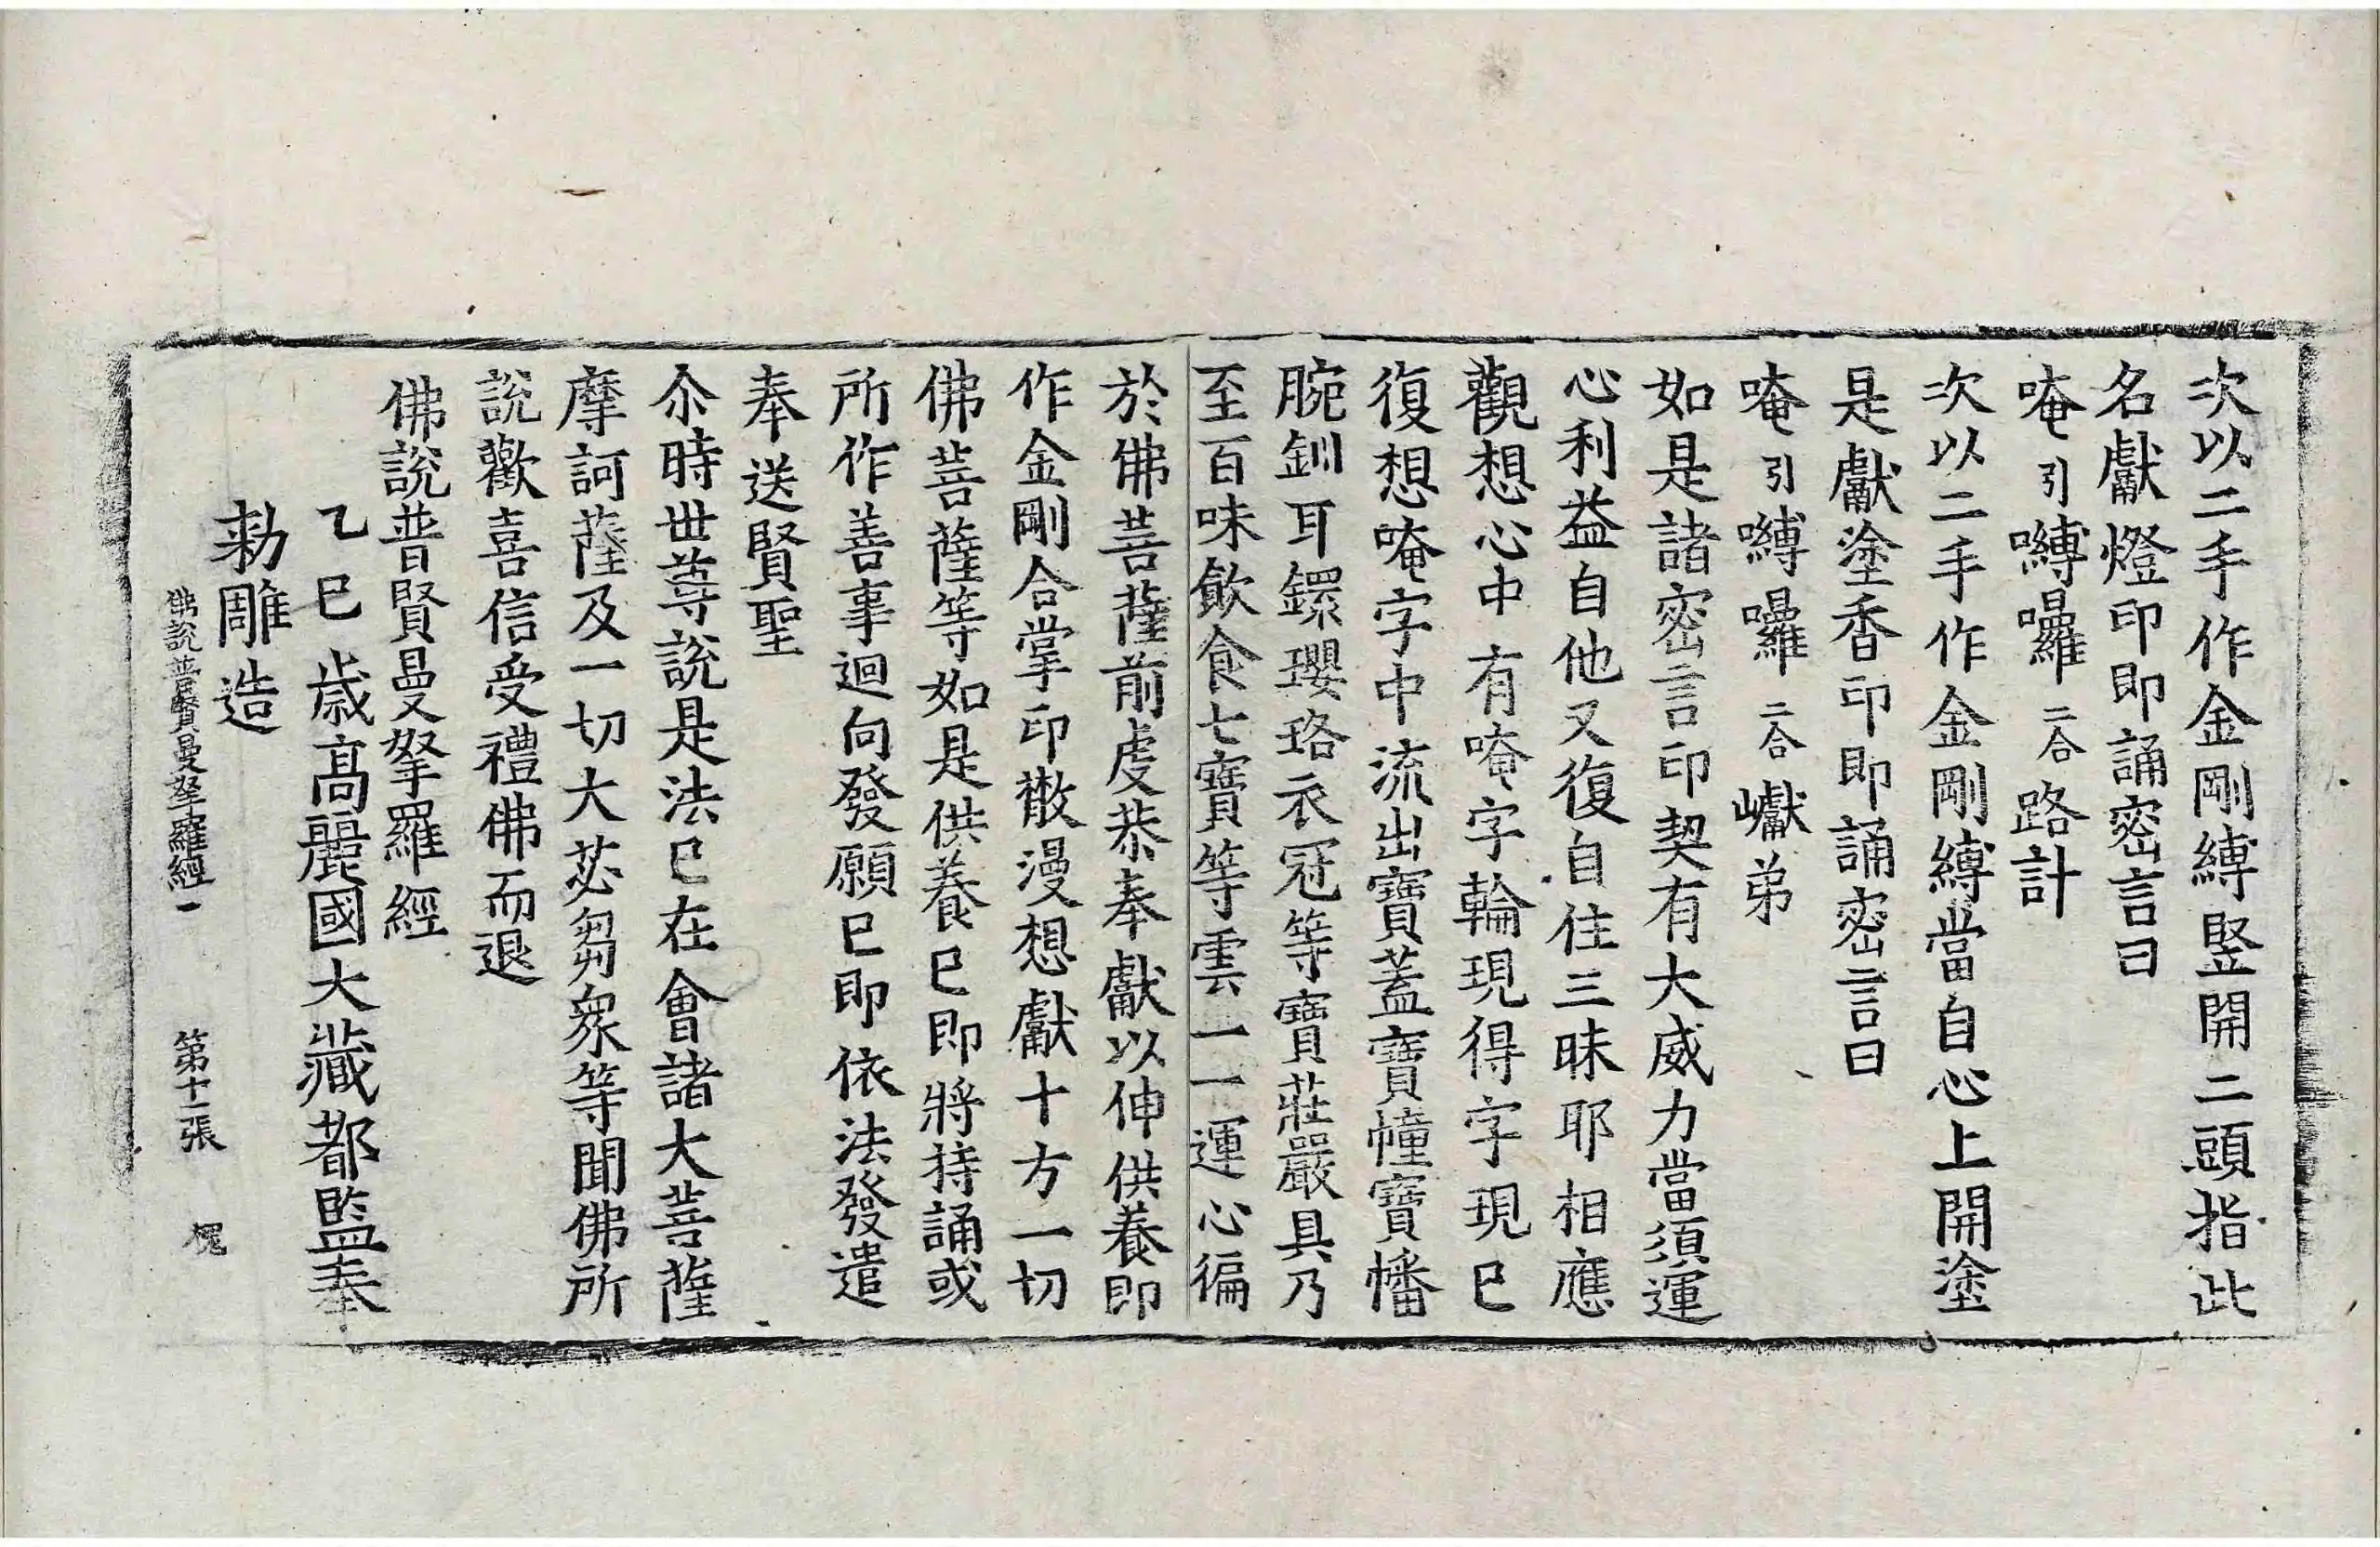 次以二手作金剛縛竪開二頭指此
名獻燈印即誦密言曰
唵引嚩囉二合路計
次以二手作金剛縛當自心上開塗
是獻塗香印即誦密言曰
唵引嚩囉二合巘弟
如是諸密言印契有大威力當須運
心利益自他又復自住三昧耶相應
觀想心中有唵字輪現得字現已
復想唵字中流出寶蓋寶幢寶幡
腕釧耳鐶瓔珞衣冠等寶莊嚴具乃
至百味飲食七寶等雲一一運心徧
於佛菩薩前虔恭奉獻以伸供養即
作金剛合掌印散漫想獻十方一切
佛菩薩等如是供養已即將持誦或
所作善事迴向發願已即依法發遣
奉送賢聖
尒時世尊說是法已在會諸大菩薩
摩訶薩及一切大苾芻衆等聞佛所
說歡喜信受禮佛而退
佛說普賢曼拏羅經
乙巳歲高麗國大藏都監奉
勅雕造
佛說普賢曼拏羅經一 第十一張 槐